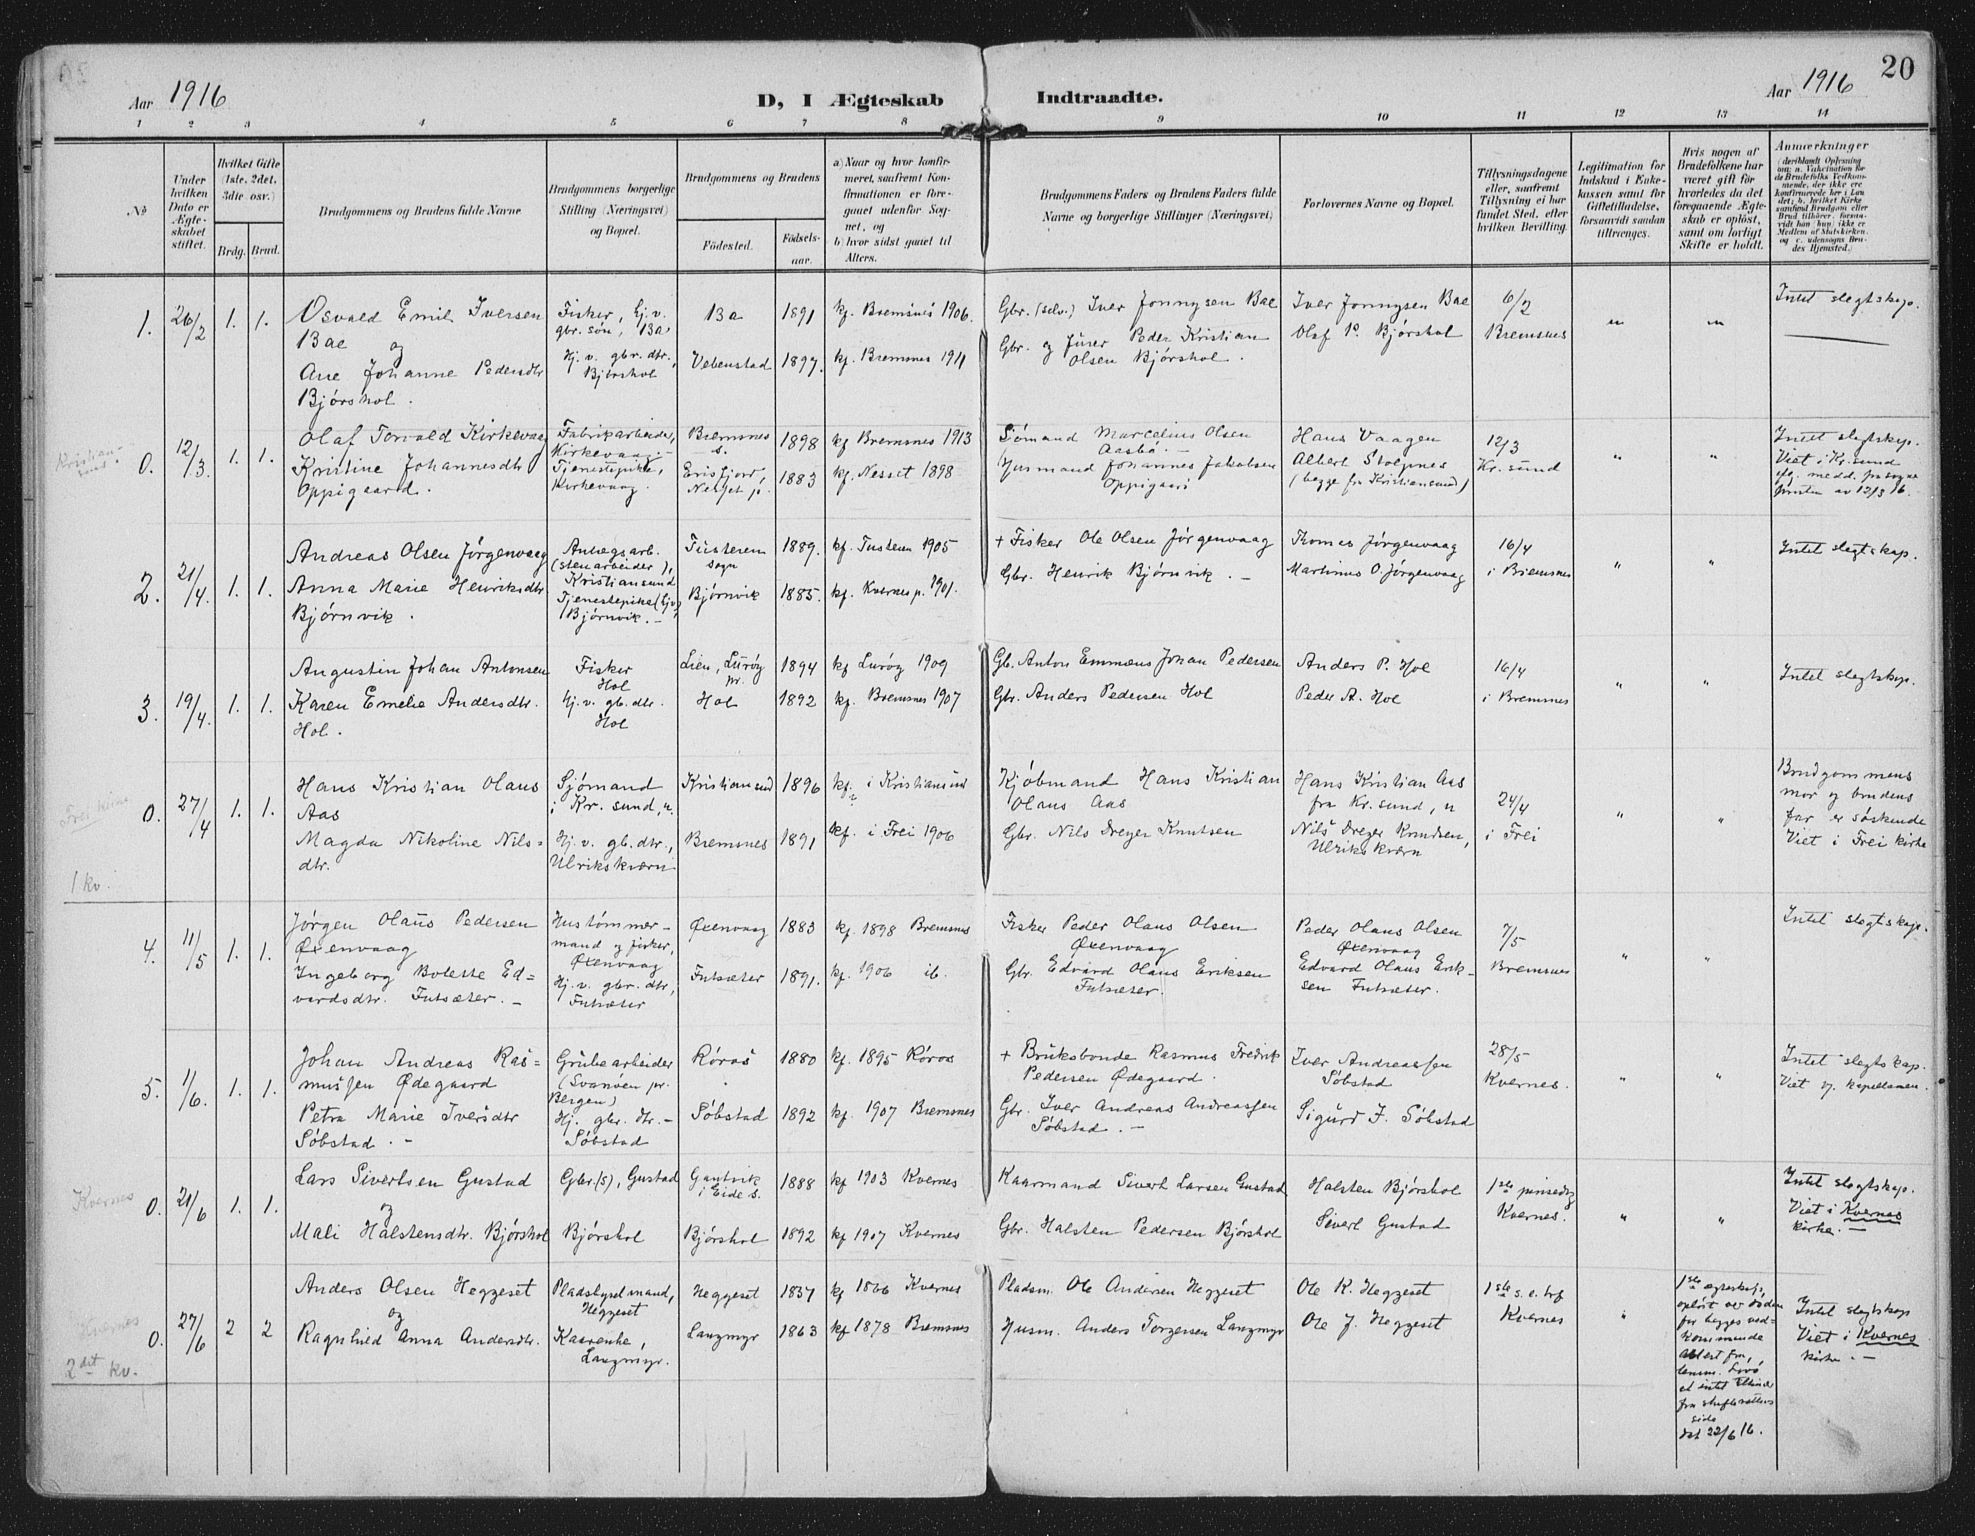 Aar 1916
D, I Ægteskab Indtraadte.
Aar 1916
20
1 2 3 4 5 6 7 8 9 10 11 12 13 14
No
Under hvilken Dato er Ægteskabet stiftet.
Hvilket Gifte (1ste, 2det, 3die osv.)
Brdg. Brud.
Brudgommens og Brudens fulde Navne
Brudgommens borgerlige Stilling (Næringsvei) og Bopæl.
Brudgommens og Brudens
Fødested.
Fødsels-aar.
a) Naar og hvor konfirmeret, saafremt Konfirmationen er foregaaet udenfor Sognet, og
b) hvor sidst gaaet til Alters.
Brudgommens Faders og Brudens Faders fulde Navne og borgerlige Stillinger (Næringsvei)
Forlovernes Navne og Bopæl.
Tillysningsdagene eller, saafremt Tillysning ei har fundet Sted, efter hvilken Bevilling.
Legitimation for Indskud i Enkekassen samt for Giftetilladelse, forsaavidt saadan tiltrænges.
Hvis nogen af Brudefolkene har været gift før hvorledes da det foregaaende Ægteskab er opløst, samt om lovligt Skifte er holdt.
Anmærkninger
1. 26/2 1. 1.
Osvald Emil Iversen
Bae
og
Ane Johanne Pedersdtr
Bjørshol.
Fisker, hj. v.
gbr. søn, Bae
Hj. v. gbr. dtr.,
Bjørshol
Bae 1891 kf. Bremsnes 1906.
Vebenstad 1897. kf. Bremsnes 1911
Gbr. (selv.) Iver Jonnysen Bae
Gbr. og furer Peder Kristian
Olsen Bjørshol.
Iver Jonnysen Bae
Olaf P. Bjørshol
6/2
Bremsnes
" "
Intet slegtskap.
Kristiansund.
0. 12/3. 1. 1.
Olaf Torvald Kirkevaag
Kristine Johannesdtr
Oppigaard.
Fabrikarbeider,
Kirkevaag.-
Tjenestepike,
Kirkevaag.
Bremsnes
s.
1898 kf Bremsnes 1913
Erisfjord,
Nesset p.
1883 kf. Nesset 1898
Sjømand Marcelius Olsen
Aasbø. -
Husmand Johannes Jakobsen
Oppigaard
Hans Vaagen
Albert Stolpnes
(begge fra Kristiansund)
12/3
Kr. sund
" "
Intet slegtskap.
Viet i Kr. sund
iflg. medd. fra sognepresten av 12/3 16.
2. 21/4. 1. 1.
Andreas Olsen Jørgenvaag
Anna Marie Henriksdtr
Bjørnvik.
Anlegsarb.
(stenarbeider),
Kristiansund
Tjenestepike (hjv)
Bjørnvik. -
Tusteren
sogn
1889. kf. Tusteren 1905
Bjørnvik 1885. kf. Kvernes p. 1901.
+ Fisker Ole Olsen Jørgenvaag
Gbr. Henrik Bjørnvik. -
Thomas Jørgenvaag
Martinus O. Jørgenvaag
16/4
i Bremsnes
" "
Intet slegtskap.
3. 19/4. 1. 1.
Augustin Johan Antonsen
Karen Emelie Andersdtr.
Hol.
Fisker
Hol
Hj. v. gb. dtr.
Hol
Lien, Lurøy
pr.
1894 kf Lurøy 1909
Hol 1892 kf. Bremsnes 1907
Gb. Anton Emmæus Johan Pedersen
Gbr. Anders Pedersen Hol
Anders P. Hol
Peder A. Hol
16/4
i Bremsnes
" "
Intet slegtskap.
Frei kirke
0. 27/4 1. 1.
Hans Kristian Olaus
Aas
Magda Nikoline Nils=
dtr.
Sjømand
i Kr. sund, n.
Hj. v. gb. dtr.,
Ulrikskværn
Kristiansund 1896 kf. i Kristiansund
Bremsnes 1891 kf. i Frei 1906
Kjøbmand Hans Kristian
Olaus Aas
Gbr. Nils Dreyer Knutsen
Hans Kristian Aas
fra Kr. sund, n
Nils Dreyer Knudsen,
Ulrikskværn
24/4
i Frei
" "
Brudgommens
mor og brudens
far er søskende
Viet i Frei kirke
1 kv.
4. 11/5 1. 1.
Jørgen Olaus Pedersen
Øxenvaag
Ingeborg Bolette Ed=
vardsdtr. Futsæter. -
Hustømmer-
mand og fisker,
Øxenvaag
Hj. v. gbr. dtr,
Futsæter
Øxenvaag 1883 kf. 1898 Bremsnes
Futsæter 1891. kf. 1906 ib.
Fisker Peder Olaus Olsen
Øxenvaag
Gbr. Edvard Olaus Eriksen
Futsæter.
Peder Olaus Olsen
Øxenvaag
Edvard Olaus Erik-
sen Futsæter.
7/5
Bremsnes
" "
Intet slegtskap.
5. 1/6. 1. 1.
Johan Andreas Ras=
mussen Ødegaard
Petra Marie Iversdtr
Søbstad. -
Grubearbeider
(Svanøen pr.
Bergen)
Hj. gbr. dtr. -
Søbstad
Røros 1880 kf. 1895 Røros
Søbstad 1892 kf. 1907 Bremsnes
+ Bruksbonde Rasmus Fredrik
Pedersen Ødegaard.
Gbr. Iver Andreas Andreassen
Søbstad. -
Iver Andreassen
Søbstad
Sigurd I. Søbstad
28/5
Kvernes.
" "
Intet slegtskap.
Viet v. kapellanen.
Kvernes
0. 21/6 1. 1.
Lars Sivertsen Gustad
og
Mali Halstensdtr. Bjørshol
Gbr. (s), Gustad
Bjørshol
Gautvik
i Eide s.
1888 kf 1903 Kvernes
Bjørshol 1892 kf 1907 Kvernes
Kaarmand Sivert Larsen Gustad
Gbr. Halsten Pedersen Bjørshol
Halsten Bjørshol
Sivert Gustad
1ste pinsedag
Kvernes.
" "
Intet slegtskap.
Viet i Kvernes
kirke. -
Kvernes
0. 27/6 2 2
Anders Olsen Heggeset
og
Ragnhild Anna Andersdtr.
Pladsbrukmand,
Heggeset
Kaarenke,
Langmyr.
Heggeset 1837 kf 1866 Kvernes
Langmyr 1863 kf 1878 Bremsnes
Pladsm. Ole Andersen Heggeset
Husm. Anders Torgersen Langmyr
Ole K. Heggeset
Ole J. Heggeset
1ste s. e. tref
Kvernes
"
1ste egteskap,
opløst av døden
for begges ved-
kommende
Attest fra
lensm.
at intet til hinder
fra skifterettens
side
dat 22/6 16.
Intet slegtskap
Viet i Kvernes
kirke. -
2det kv.